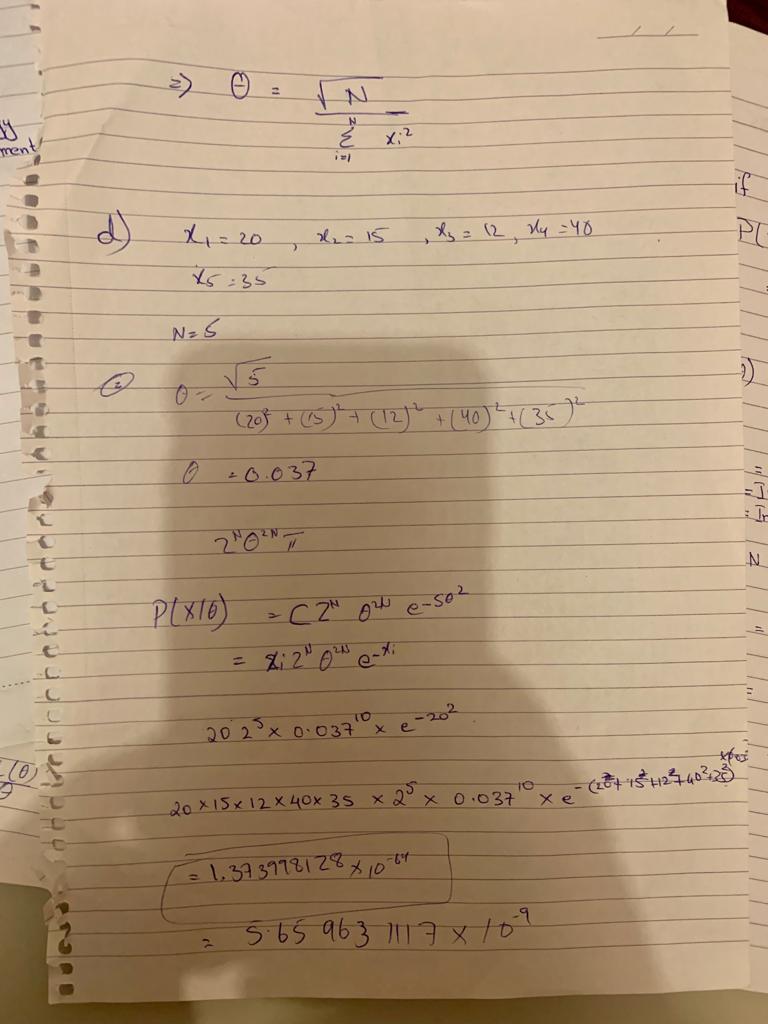 ⇒ θ = √N / Σ_{i=1}^{N} xi²
d) x₁ = 20 , x₂ = 15 , x₃ = 12 , x₄ = 40
x₅ = 35
N = 5
θ = √5 / (20)² + (15)² + (12)² + (40)² + (35)²
θ = 0.037
2ᴺ θ²ᴺ π
P(X|θ) = C 2ᴺ θ²ᴺ e^-Sθ²
= xi 2ᴺ θ²ᴺ e^-xi
20 2⁵ × 0.037¹⁰ × e^-20²
20 × 15 × 12 × 40 × 35 × 2⁵ × 0.037¹⁰ × e^-(20² + 15² + 12² + 40² + 35²)
= 1.373998128 × 10^-64
= 5.659631117 × 10^-9
ment
if
P(
N